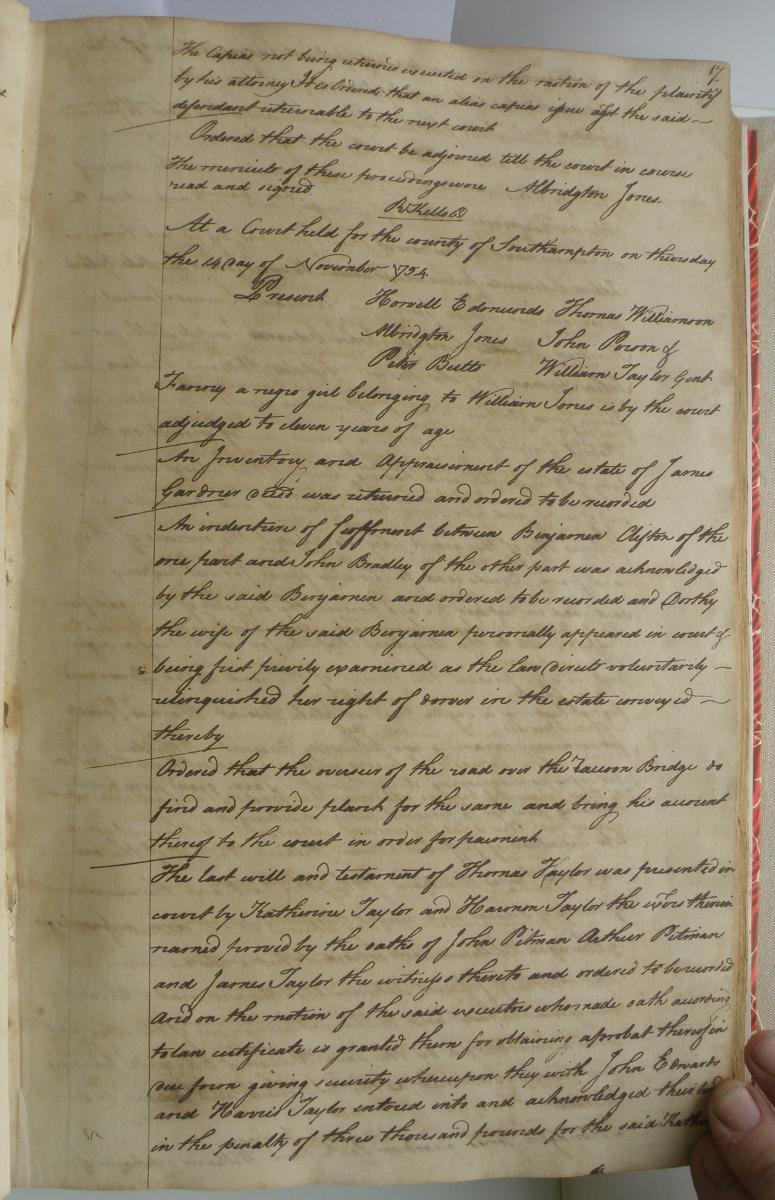 17
The Capias not being returned executed on the motion of the plaintif
by his attorney It is Ordered that an alias capias issue agt the said
defendant returnable to the next court
Ordered that the court be adjourned till the court in course
The minuets of these proceedings were Albridgton Jones.
read and signed
At a Court held for the county of Southampton on thursday
the 14 Day of November 1754.
Present Howell Edmunds Thomas Williamson
Albridgton Jones John Person &
Peter Butts William Taylor Gent
Fanny a negro girl belonging to William Jones is by the court
adjudged to eleven years of age
An Inventory and Appraisement of the estate of James
Gardner decd was returned and ordered to be recorded
An indenture of feoffment between Benjamen Clifton of the
one part and John Bradley of the other part was acknowledged
by the said Benjamen and ordered to be recorded and Dorthy
the wife of the said Benjamen personally appeared in court &
being first privily examined as the law directs voluntarily
relinquished her right of dower in the estate conveyed
thereby
Ordered that the overseer of the road over the Bridge do
find and provide planck for the same and bring his account
thereof to the court in order for paement
The last will and testament of Thomas Taylor was presented in
court by Katherine Taylor and Harmon Taylor the exors therein
named proved by the oaths of John Pitman Arthur Pitman
and James Taylor the witness thereto and ordered to be recorded
And on the motion of the said executors who made oath according
to law certificate is granted them for obtaining a probat thereof in
due form giving security whereupon they with John Edwards
and Harris Taylor entered into and acknowledged their
in the penalty of three thousand pounds for the said